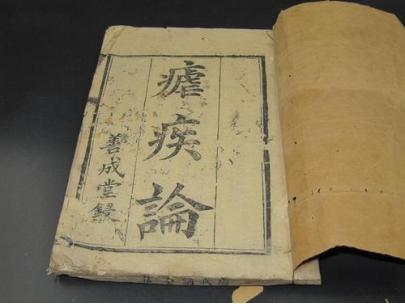 瘧疾論
善成堂鋟